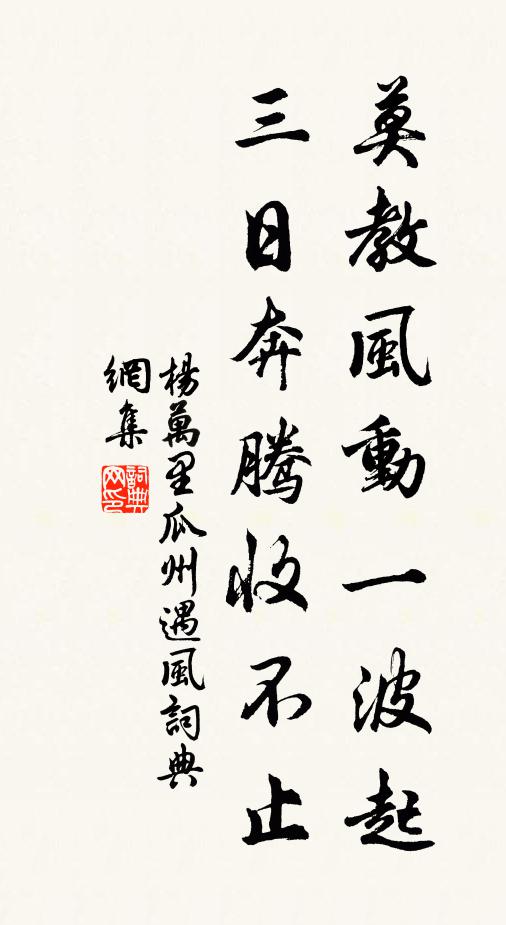 莫教風動一波起
三日奔騰收不止
楊萬里瓜州遇風詞典
網集
詞典網印